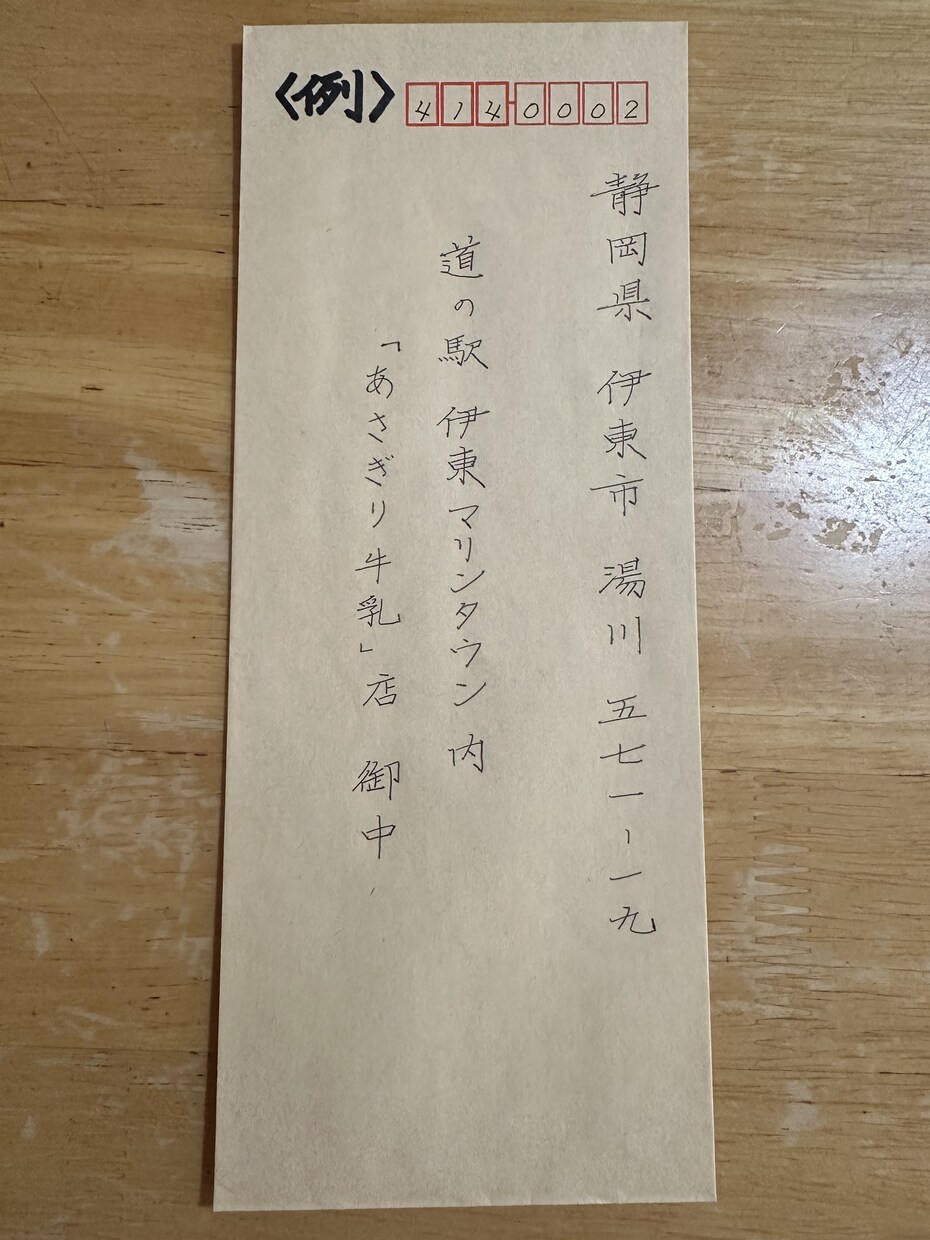 〈例〉 4140002
静岡県 伊東市 湯川 五七一ー一九
道の駅 伊東マリンタウン 内
「あさぎり牛乳」店 御中